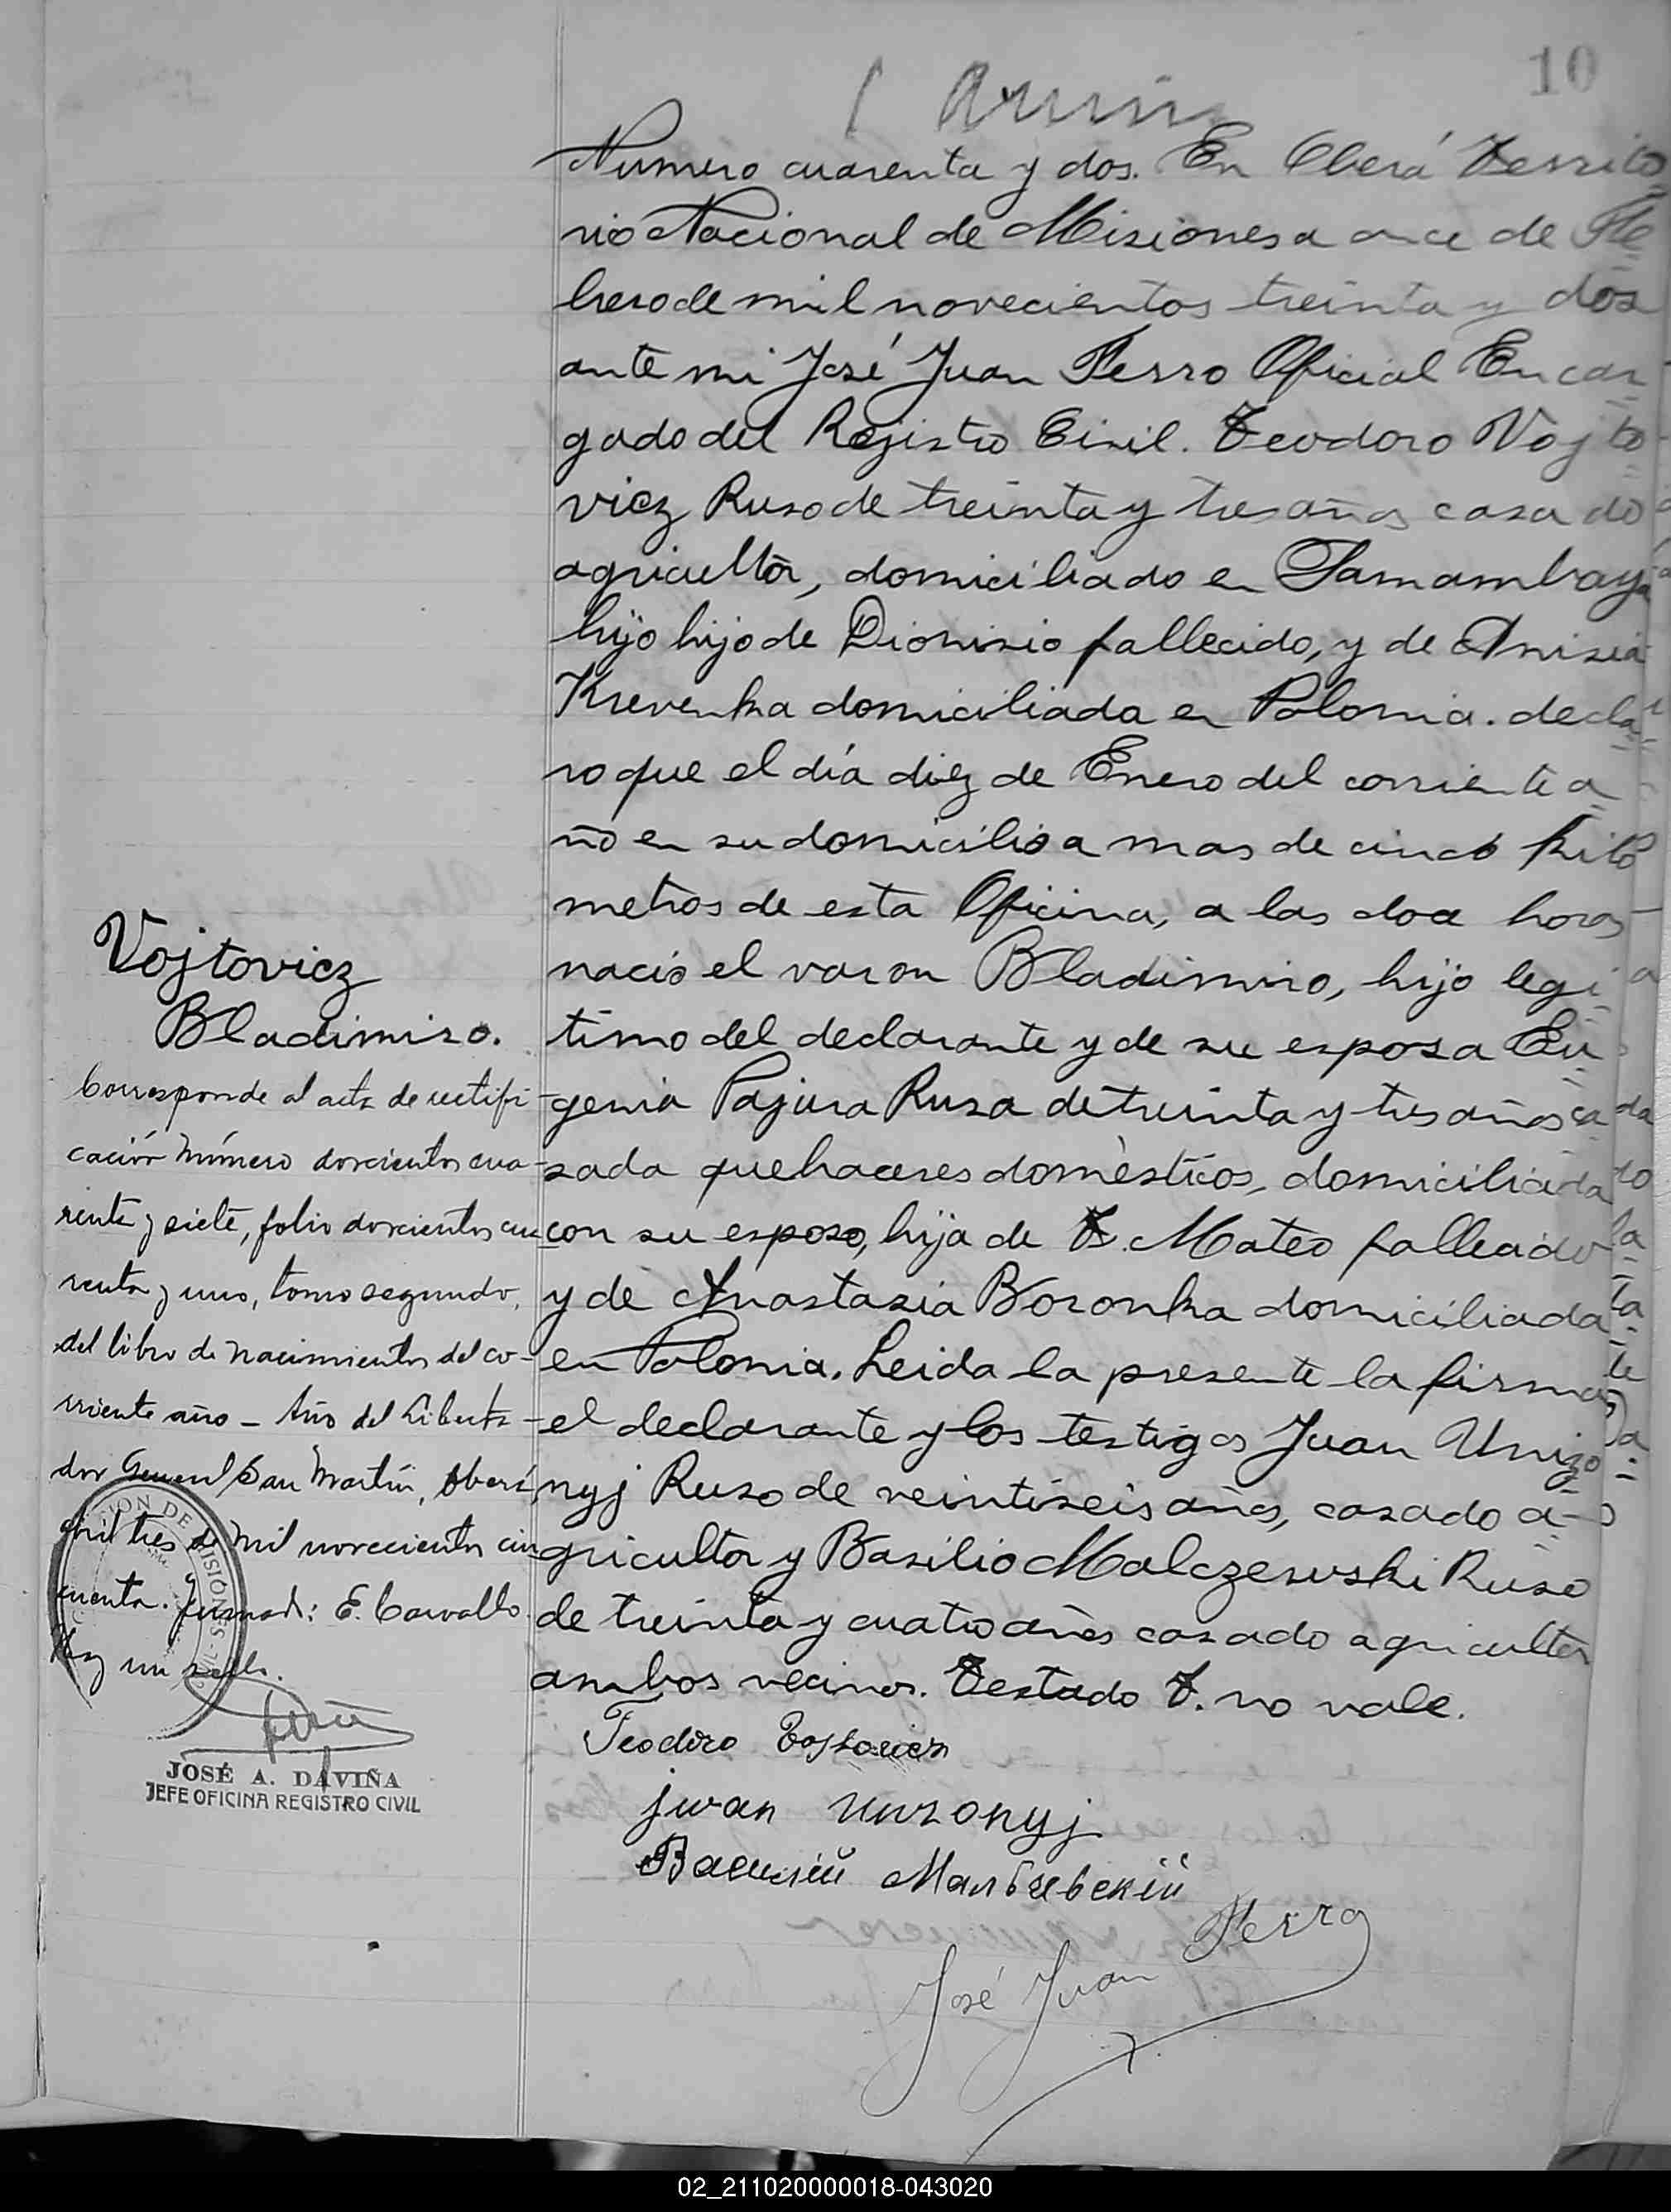 10
Numero cuarenta y dos. En Oberá Territo
rio Nacional de Misiones a once de Fe
brero de mil novecientos treinta y dos
ante mi José Juan Ferro Oficial Encar
gado del Rejistro Civil. Teodoro Vojto
vicz Ruso de treinta y tres años casado
agricultor, domiciliado en Samambaya
hijo hijo de Dionisio fallecido, y de Anisia
Krevenka domiciliada en Polonia. decla
ro que el día diez de Enero del corriente a
ño en su domicilio a mas de cinco kilo
metros de esta Oficina, a las doce horas
nacio el varon Bladimiro, hijo legi
timo del declarante y de su esposa Eu
genia Pajura Rusa de treinta y tres años ca
sada quehaceres domèsticos, domiciliada
con su esposo, hija de T. Mateo fallecido
y de Anastasia Boronka domiciliada
en Polonia. Leida la presente la firma
el declarante y los testigos Juan Unizo
nyj Ruso de veintiseis años, casado a
gricultor y Basilio Malczewski Ruso
de treinta y cuatro años casado agricultor
ambos vecinos. Testado T. no vale.
Teodoro
jwan unzonyj
Василий
José Juan Ferro
Vojtovicz
Bladimiro.
Corresponde al acta de rectifi-
cación número doscientos cua-
renta y siete, folio doscientos cua
renta y uno, tomo segundo,
del libro de nacimientos del co-
rriente año - Año del Liberta-
dor General San Martín, Oberá,
abril tres de mil novecientos cin
cuenta. Firmado: E. Carvallo.
Hay un sello.
JOSÉ A. DAVIÑA
JEFE OFICINA REGISTRO CIVIL
02_211020000018-043020